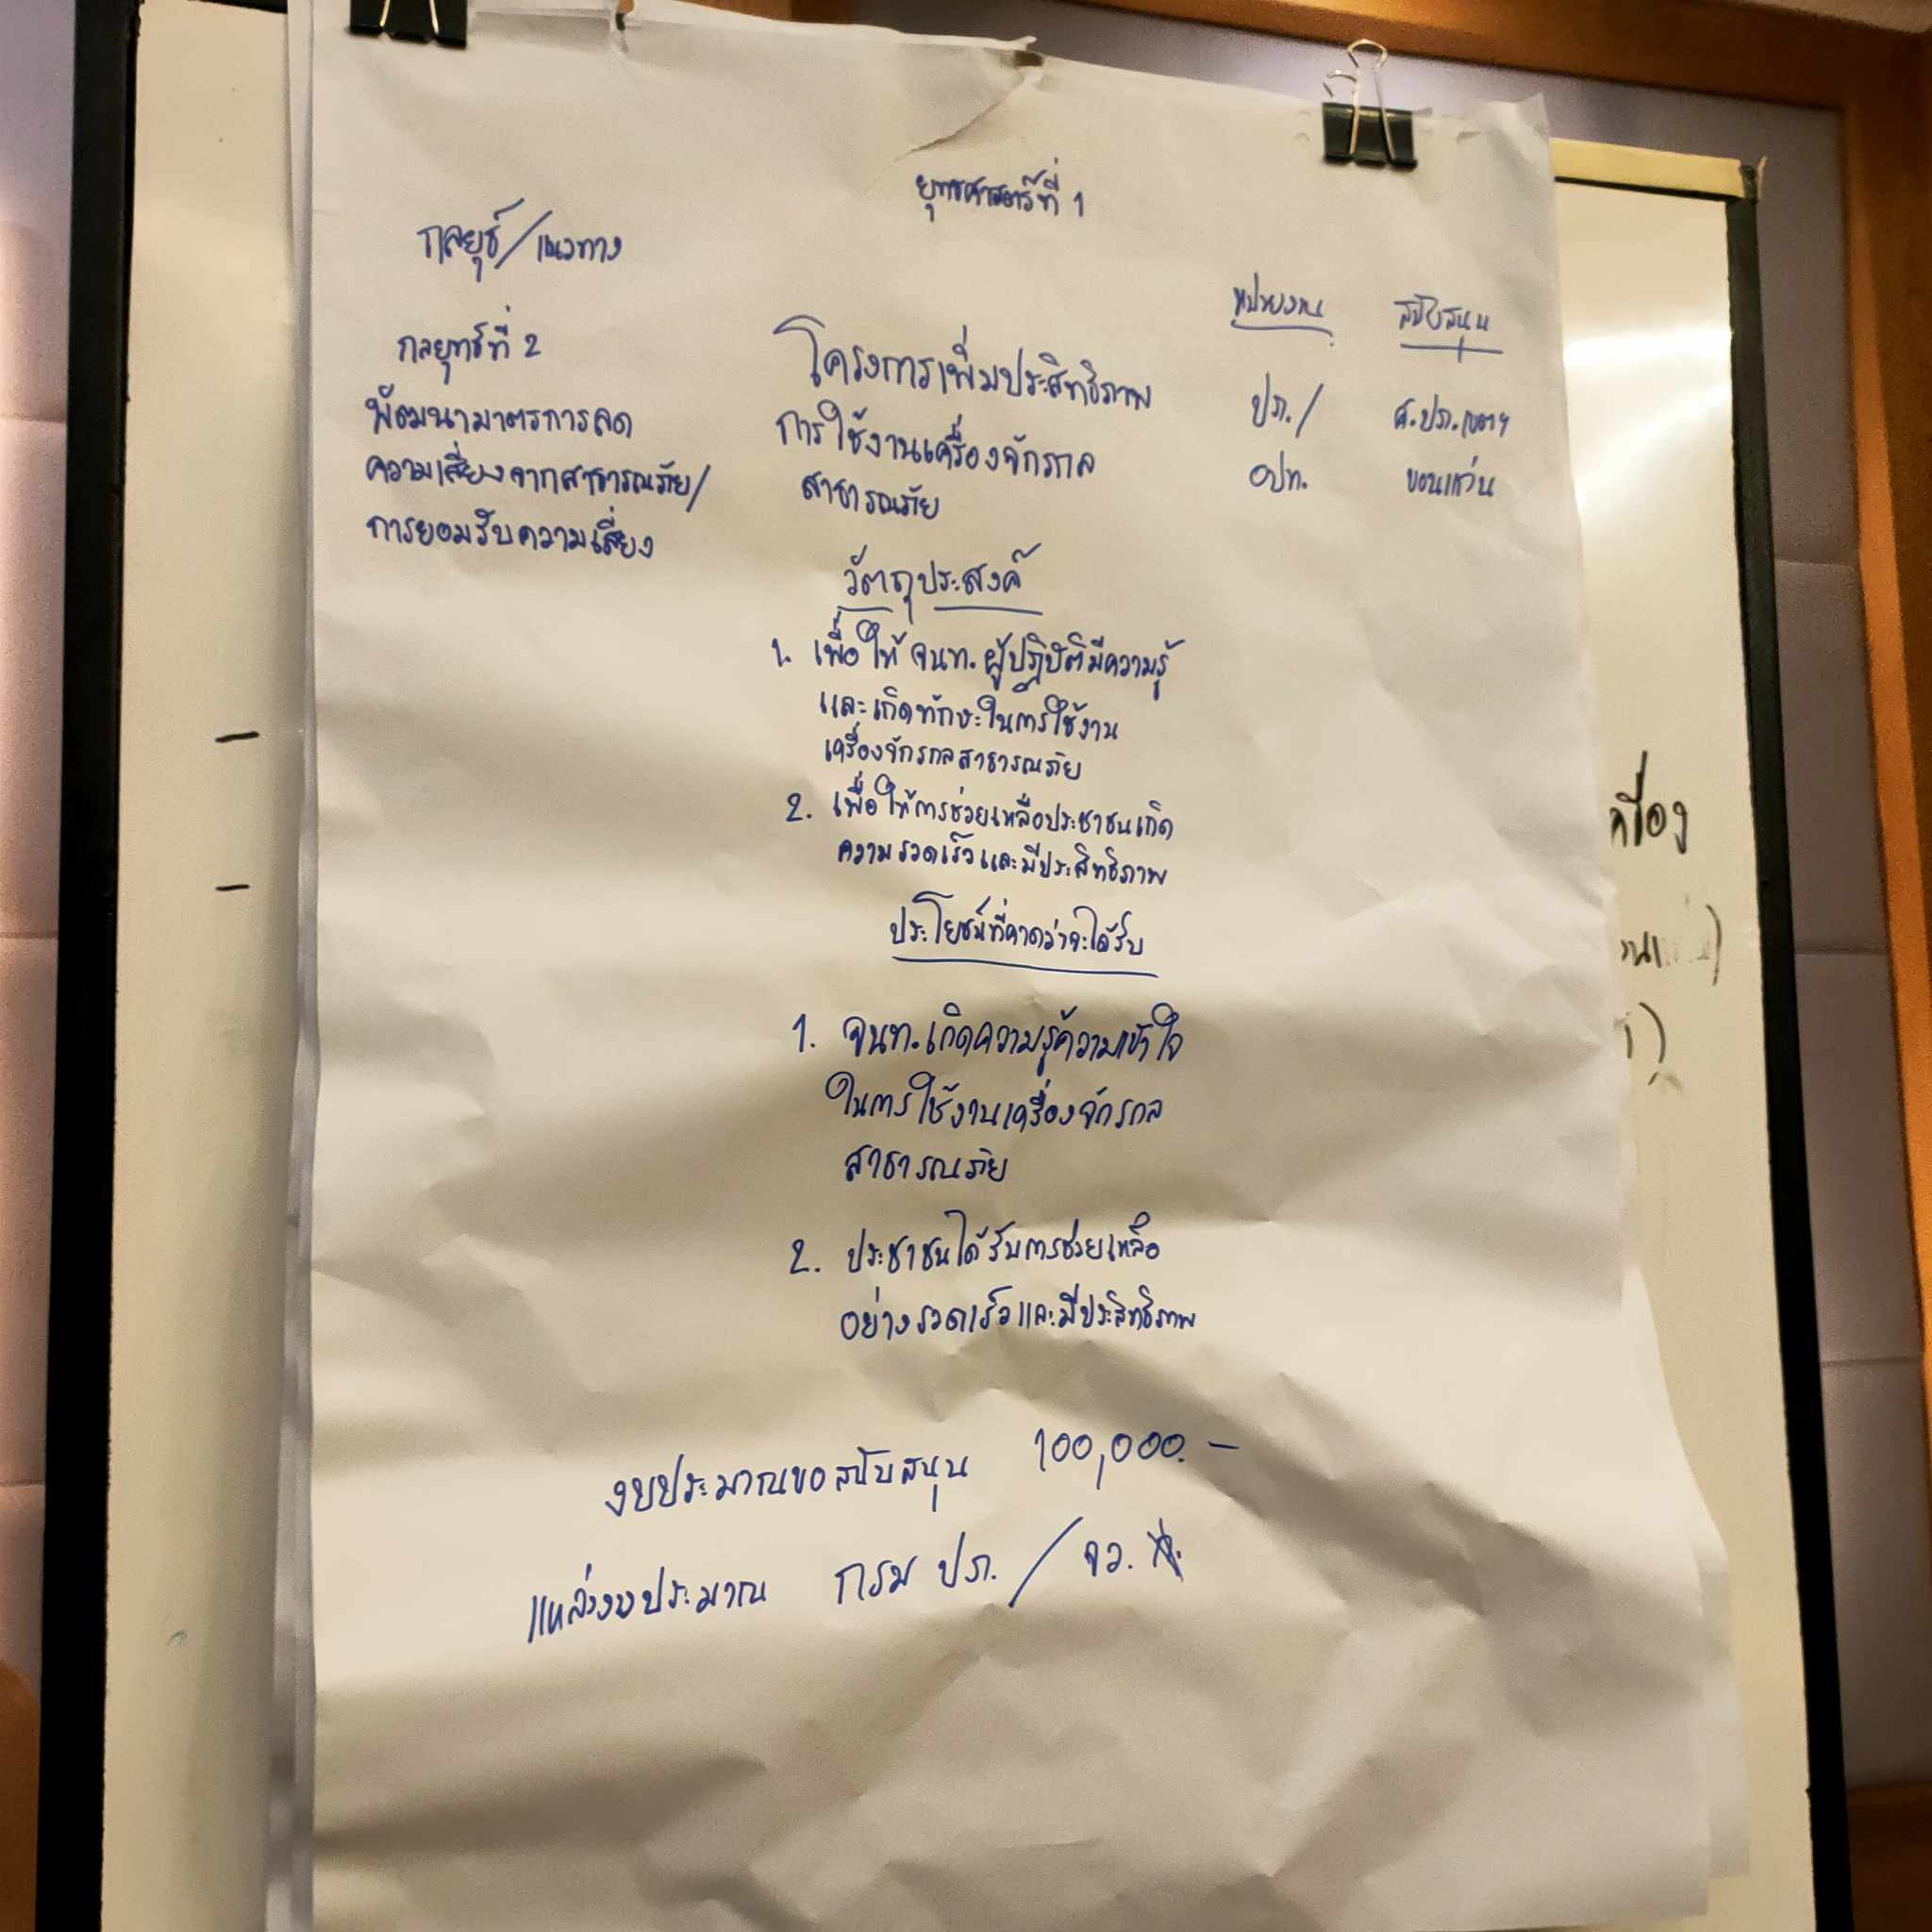 ยุทธศาสตร์ที่ 1
กลยุธ์/แนวทาง
หน่วยงาน สนับสนุน
กลยุทธ์ที่ 2
พัฒนามาตรการลด
ความเสี่ยงจากสาธารณภัย/
การยอมรับความเสี่ยง
โครงการเพิ่มประสิทธิภาพ
การใช้งานเครื่องจักรกล
สาธารณภัย
ปภ./ ศ.ปภ.เขตฯ
อปท. ขอนแก่น
วัตถุประสงค์
1. เพื่อให้ จนท. ผู้ปฏิบัติมีความรู้
และเกิดทักษะในการใช้งาน
เครื่องจักรกลสาธารณภัย
2. เพื่อให้การช่วยเหลือประชาชนเกิด
ความรวดเร็วและมีประสิทธิภาพ
ประโยชน์ที่คาดว่าจะได้รับ
1. จนท. เกิดความรู้ความเข้าใจ
ในการใช้งานเครื่องจักรกล
สาธารณภัย
2. ประชาชนได้รับการช่วยเหลือ
อย่างรวดเร็วและมีประสิทธิภาพ
งบประมาณขอสนับสนุน 100,000.-
แหล่งงบประมาณ กรม ปภ. / จว.